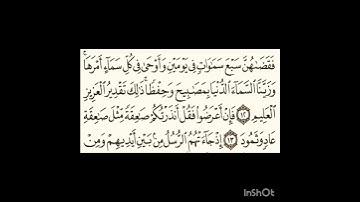 فَقَضَىٰهُنَّ سَبْعَ سَمَٰوَاتٍ فِى يَوْمَيْنِ وَأَوْحَىٰ فِى كُلِّ سَمَآءٍ أَمْرَهَا ۚ
وَزَيَّنَّا ٱلسَّمَآءَ ٱلدُّنْيَا بِمَصَٰبِيحَ وَحِفْظًا ۚ ذَٰلِكَ تَقْدِيرُ ٱلْعَزِيزِ
ٱلْعَلِيمِ ١٢ فَإِنْ أَعْرَضُوا۟ فَقُلْ أَنذَرْتُكُمْ صَٰعِقَةً مِّثْلَ صَٰعِقَةِ
عَادٍ وَثَمُودَ ١٣ إِذْ جَآءَتْهُمُ ٱلرُّسُلُ مِنۢ بَيْنِ أَيْدِيهِمْ وَمِنْ
InShOt